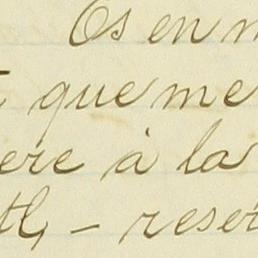 Os en
que me
ere à la
— reser